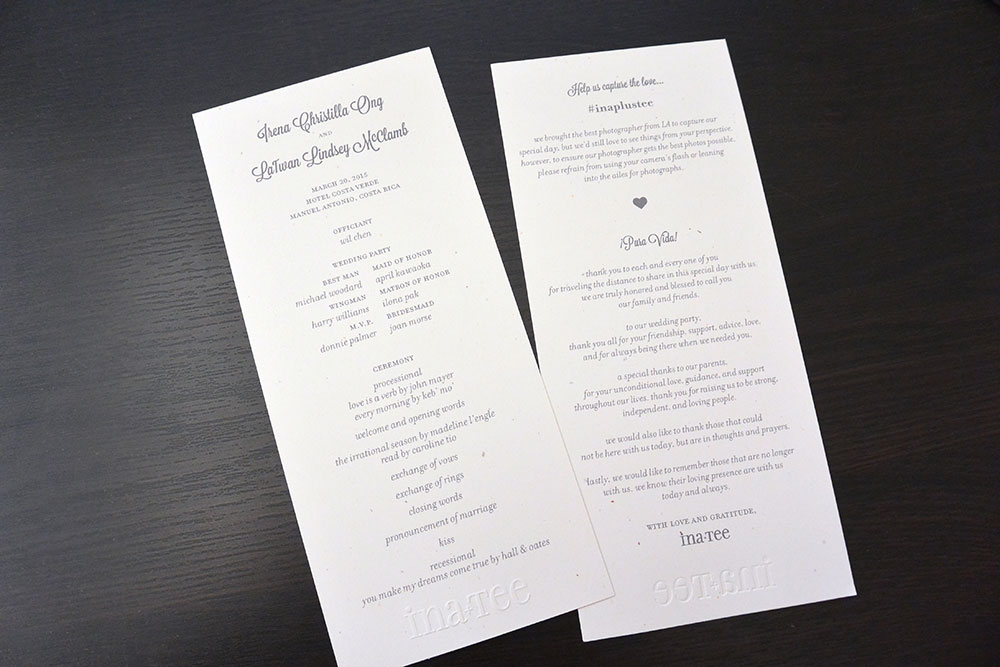 Irena Christilla Ong
AND
LaTwan Lindsey McClamb
MARCH 20, 2015
HOTEL COSTA VERDE
MANUEL ANTONIO, COSTA RICA
OFFICIANT
wil chen
WEDDING PARTY
BEST MAN MAID OF HONOR
michael woodard april kawaoka
WINGMAN MATRON OF HONOR
harry williams ilona pak
M.V.P. BRIDESMAID
donnie palmer joan morse
CEREMONY
processional
love is a verb by john mayer
every morning by keb' mo'
welcome and opening words
the irrational season by madeline l'engle
read by caroline tio
exchange of vows
exchange of rings
closing words
pronouncement of marriage
kiss
recessional
you make my dreams come true by hall & oates
ina+Tee
Help us capture the love...
#inaplustee
we brought the best photographer from LA to capture our
special day, but we'd still love to see things from your perspective.
however, to ensure our photographer gets the best photos possible,
please refrain from using your camera's flash or leaning
into the ailes for photographs.
¡Pura Vida!
thank you to each and every one of you
for traveling the distance to share in this special day with us.
we are truly honored and blessed to call you
our family and friends.
to our wedding party,
thank you all for your friendship, support, advice, love,
and for always being there when we needed you.
a special thanks to our parents,
for your unconditional love, guidance, and support
throughout our lives. thank you for raising us to be strong,
independent, and loving people.
we would also like to thank those that could
not be here with us today, but are in thoughts and prayers.
lastly, we would like to remember those that are no longer
with us. we know their loving presence are with us
today and always.
WITH LOVE AND GRATITUDE,
ina+Tee
ina+Tee